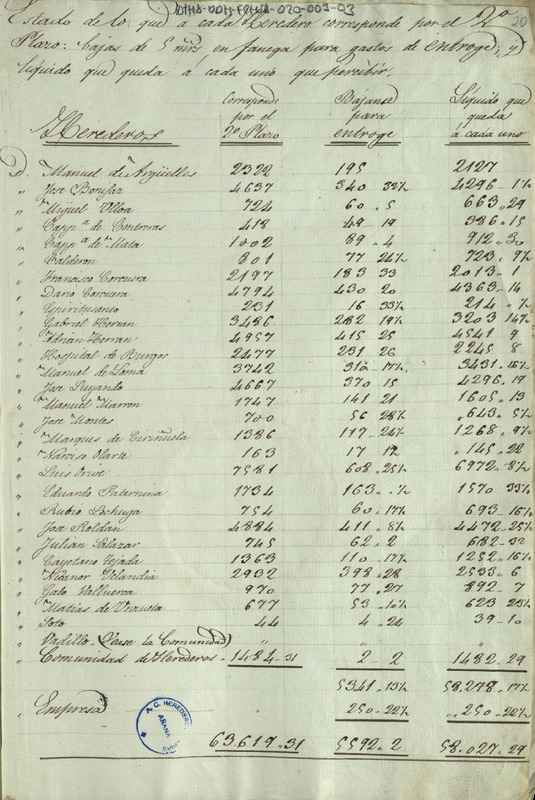 Estado de lo que á cada Heredero corresponde por el 2º 20
Plazo: bajas de 5 mrs en fanega para gastos de entroge; y
líquido que queda á cada uno que percibir.
Herederos Corresponde por el 2º Plazo Bájanse para entroge Líquido que queda á cada uno
D. Manuel de Argüelles 2322 195 2127
" José Bonifaz 4637 340 32½ 4296 - 1½
" Miguel Ulloa 724 60 . 5 663 . 29
" Capp.ª de Contreras 418 49 - 19 15
" Capp.ª de Mata 1002 89 . 4 912 . 30
" Calderon 801 77 24½ 723 . 9½
" Francisco Corcuera 2197 183 33 2013 . 1
" Dario Corcuera 4794 430 20 4363 . 14
" 231 16 33½ 214 . ½
" Gabriel Herran 3486 282 19½ 3203 14½
" Adrian Herran 4957 415 25 4541 9
" Hospital de Burgos 2477 231 26 2245 8
" Manuel de Loma 3742 310 17½ 3431 . 16½
" José Luyando 4667 370 15 4296 . 19
" Manuel Marron 1747 141 21 1605 . 13
" José Montes 700 56 28½ 643 . 5½
" Marques de Ciriñuela 1386 117 - 24½ 1268 . 9½
" Narciso Olarte 163 17 12 145 . 22
" Luis Orive 7581 608 . 25½ 6972 . 8½
" Eduardo Paternina 1734 163 . ½ 1570 33½
" Rubio 754 60 . 17½ 693 16½
" José Roldan 4884 411 . 8½ 4472 . 25½
" Julian Salazar 745 62 . 2 682 - 32
" Cayetano Tejada 1363 110 - 17½ 1252 . 16½
" Nicanor Velandia 2932 398 . 28 2533 . 6
" Galo Valluerca 970 77 . 27 892 - 7
" Matias de Urrueta 677 53 . 10½ 623 23½
" Soto 44 4 . 24 39 - 10
" Vadillo - (Véase la Comunidad) " " "
" Comunidad de Herederos - 1484 - 31 2 2 1482 . 29
5341 . 13½ 58.278 . 17½
" Empresa 250 - 22½ " . 250 . 22½
63.619 . 31 5592 . 2 58.027 . 29
A. C. HEREDEROS
AÑANA